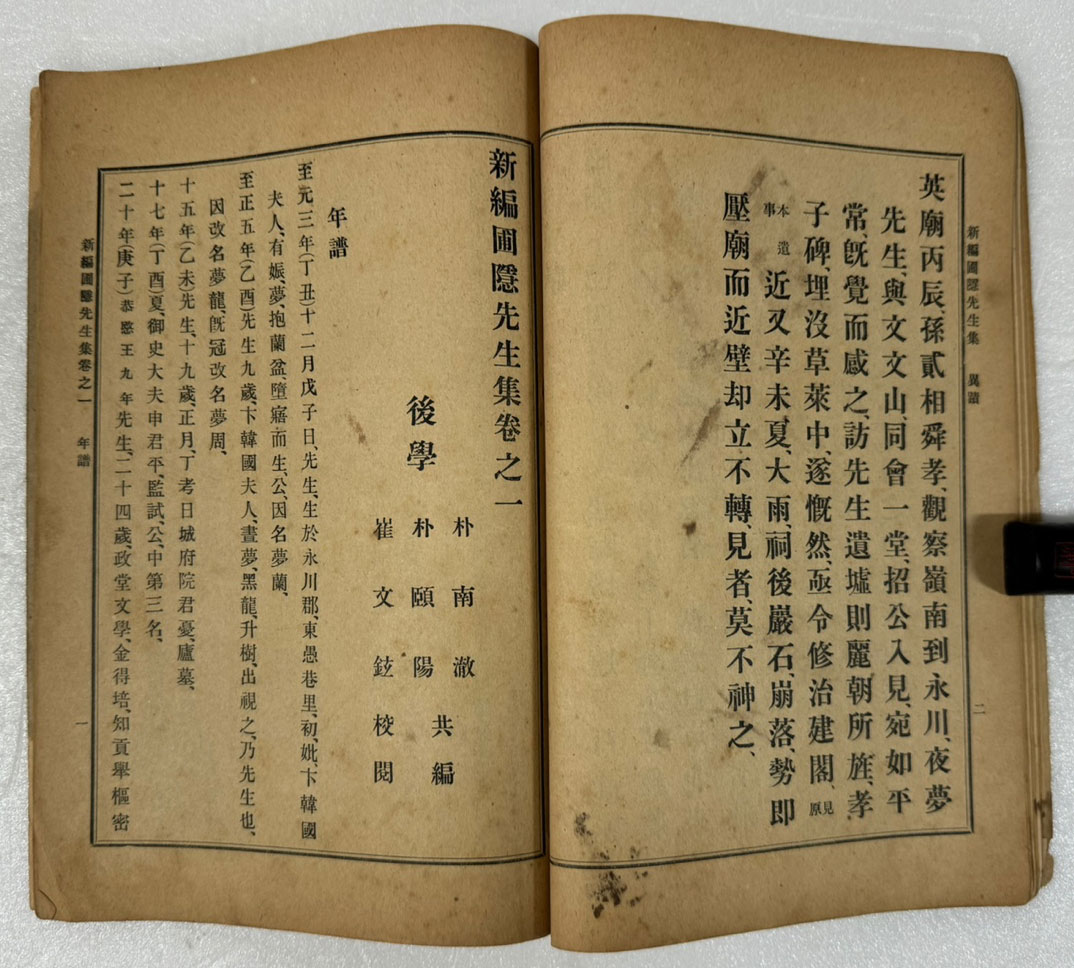 新編圃隱先生集　異蹟
二
英廟丙辰、孫貳相舜孝、觀察嶺南到永川、夜夢
先生、與文文山、同會一堂、招公入見、宛如平
常、旣覺而感之、訪先生遺墟則麗朝所旌、孝
子碑、埋沒草萊中、遂慨然、亟令修治建閣、見原
本遺事　近又辛未、夏、大雨、祠後巖石、崩落、勢卽
壓廟而近壁却立不轉、見者、莫不神之、
新編圃隱先生集卷之一
後學　朴南澈
朴頤陽　共編
崔文鉉　校閱
年譜
至元三年(丁丑)十二月戊子日、先生、生於永川郡、東愚巷里、初、妣、卞韓國
夫人、有娠、夢、抱蘭盆、墮寤而生、公、因名夢蘭、
至正五年(乙酉)先生九歲、卞韓國夫人、晝夢、黑龍、升樹、出視之、乃先生也、
因改名夢龍、旣冠改名夢周、
十五年(乙未)先生、十九歲、正月、丁考日城府院君憂、廬墓、
十七年(丁酉)夏、御史大夫申君平、監試、公、中第三名、
二十年(庚子)恭愍王九年先生、二十四歲、政堂文學、金得培、知貢舉樞密
新編圃隱先生集卷之一　年譜
一